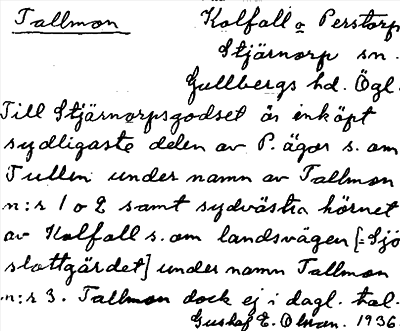 Tallmon
Kolfall o Perstorp
Stjärnorp sn.
Gullbergs hd. Ögl.
Till Stjärnorpsgodset är inköpt
sydligaste delen av P. ägor s. om
Tullen under namn av Tallmon
n:r 1 o 2 samt sydvästra hörnet
av Kolfall s. om landsvägen [=Sjö
slottgärdet] under namn Tallmon
n:r 3. Tallmon dock ej i dagl. tal.
Gustaf E. Olsson. 1936